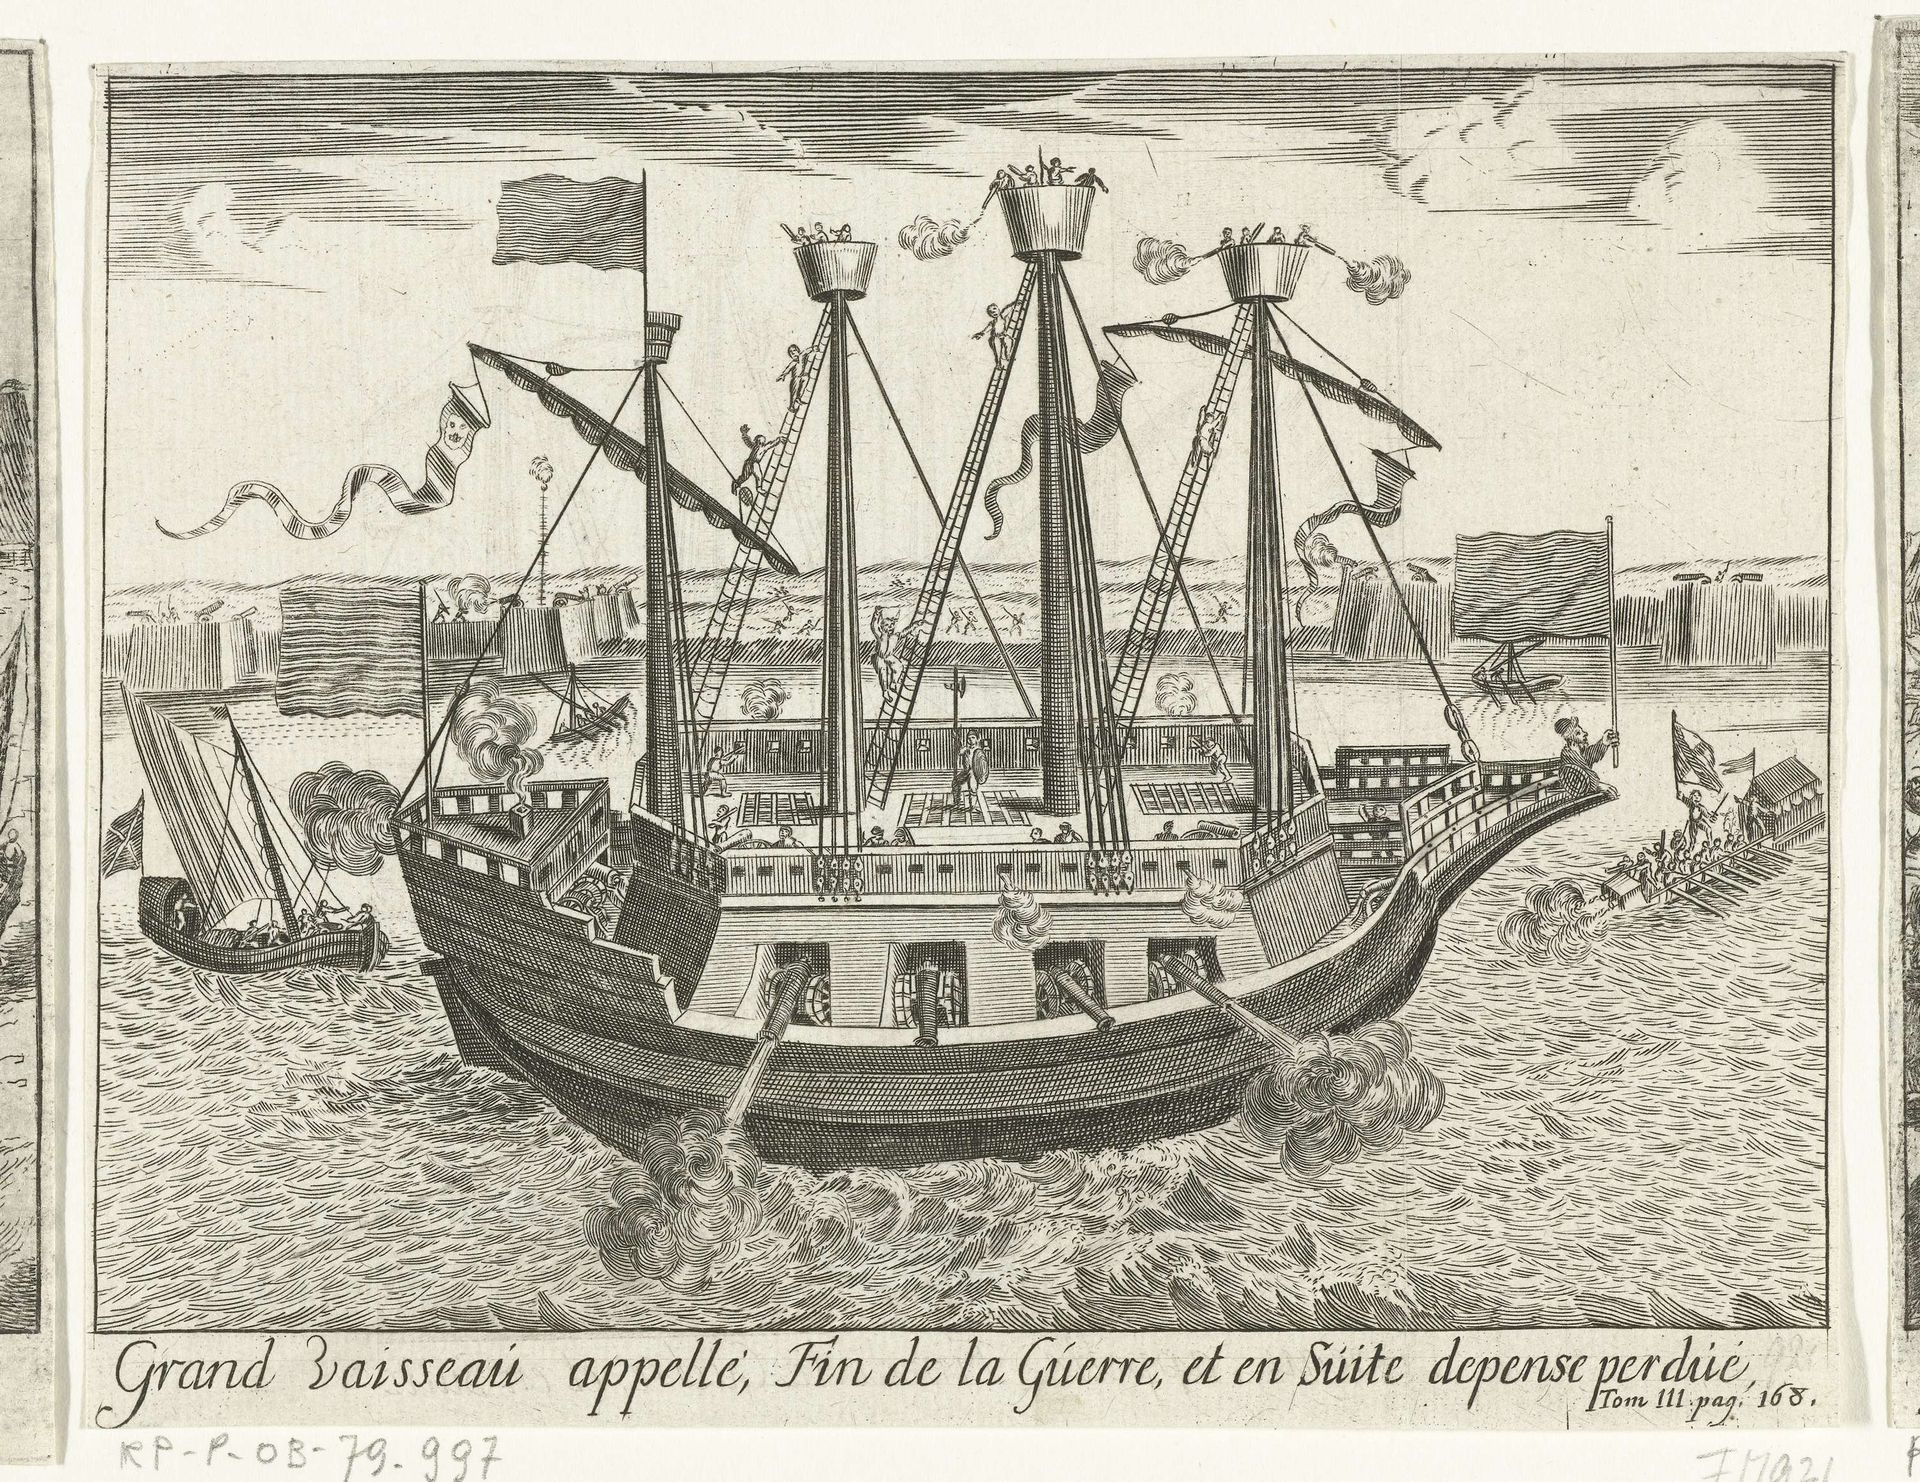 Grand Vaisseaú appellé, Fin de la Gúerre, et en Súite depense perdúé,
Tom III. pag. 168.
RP-P-OB-79.997